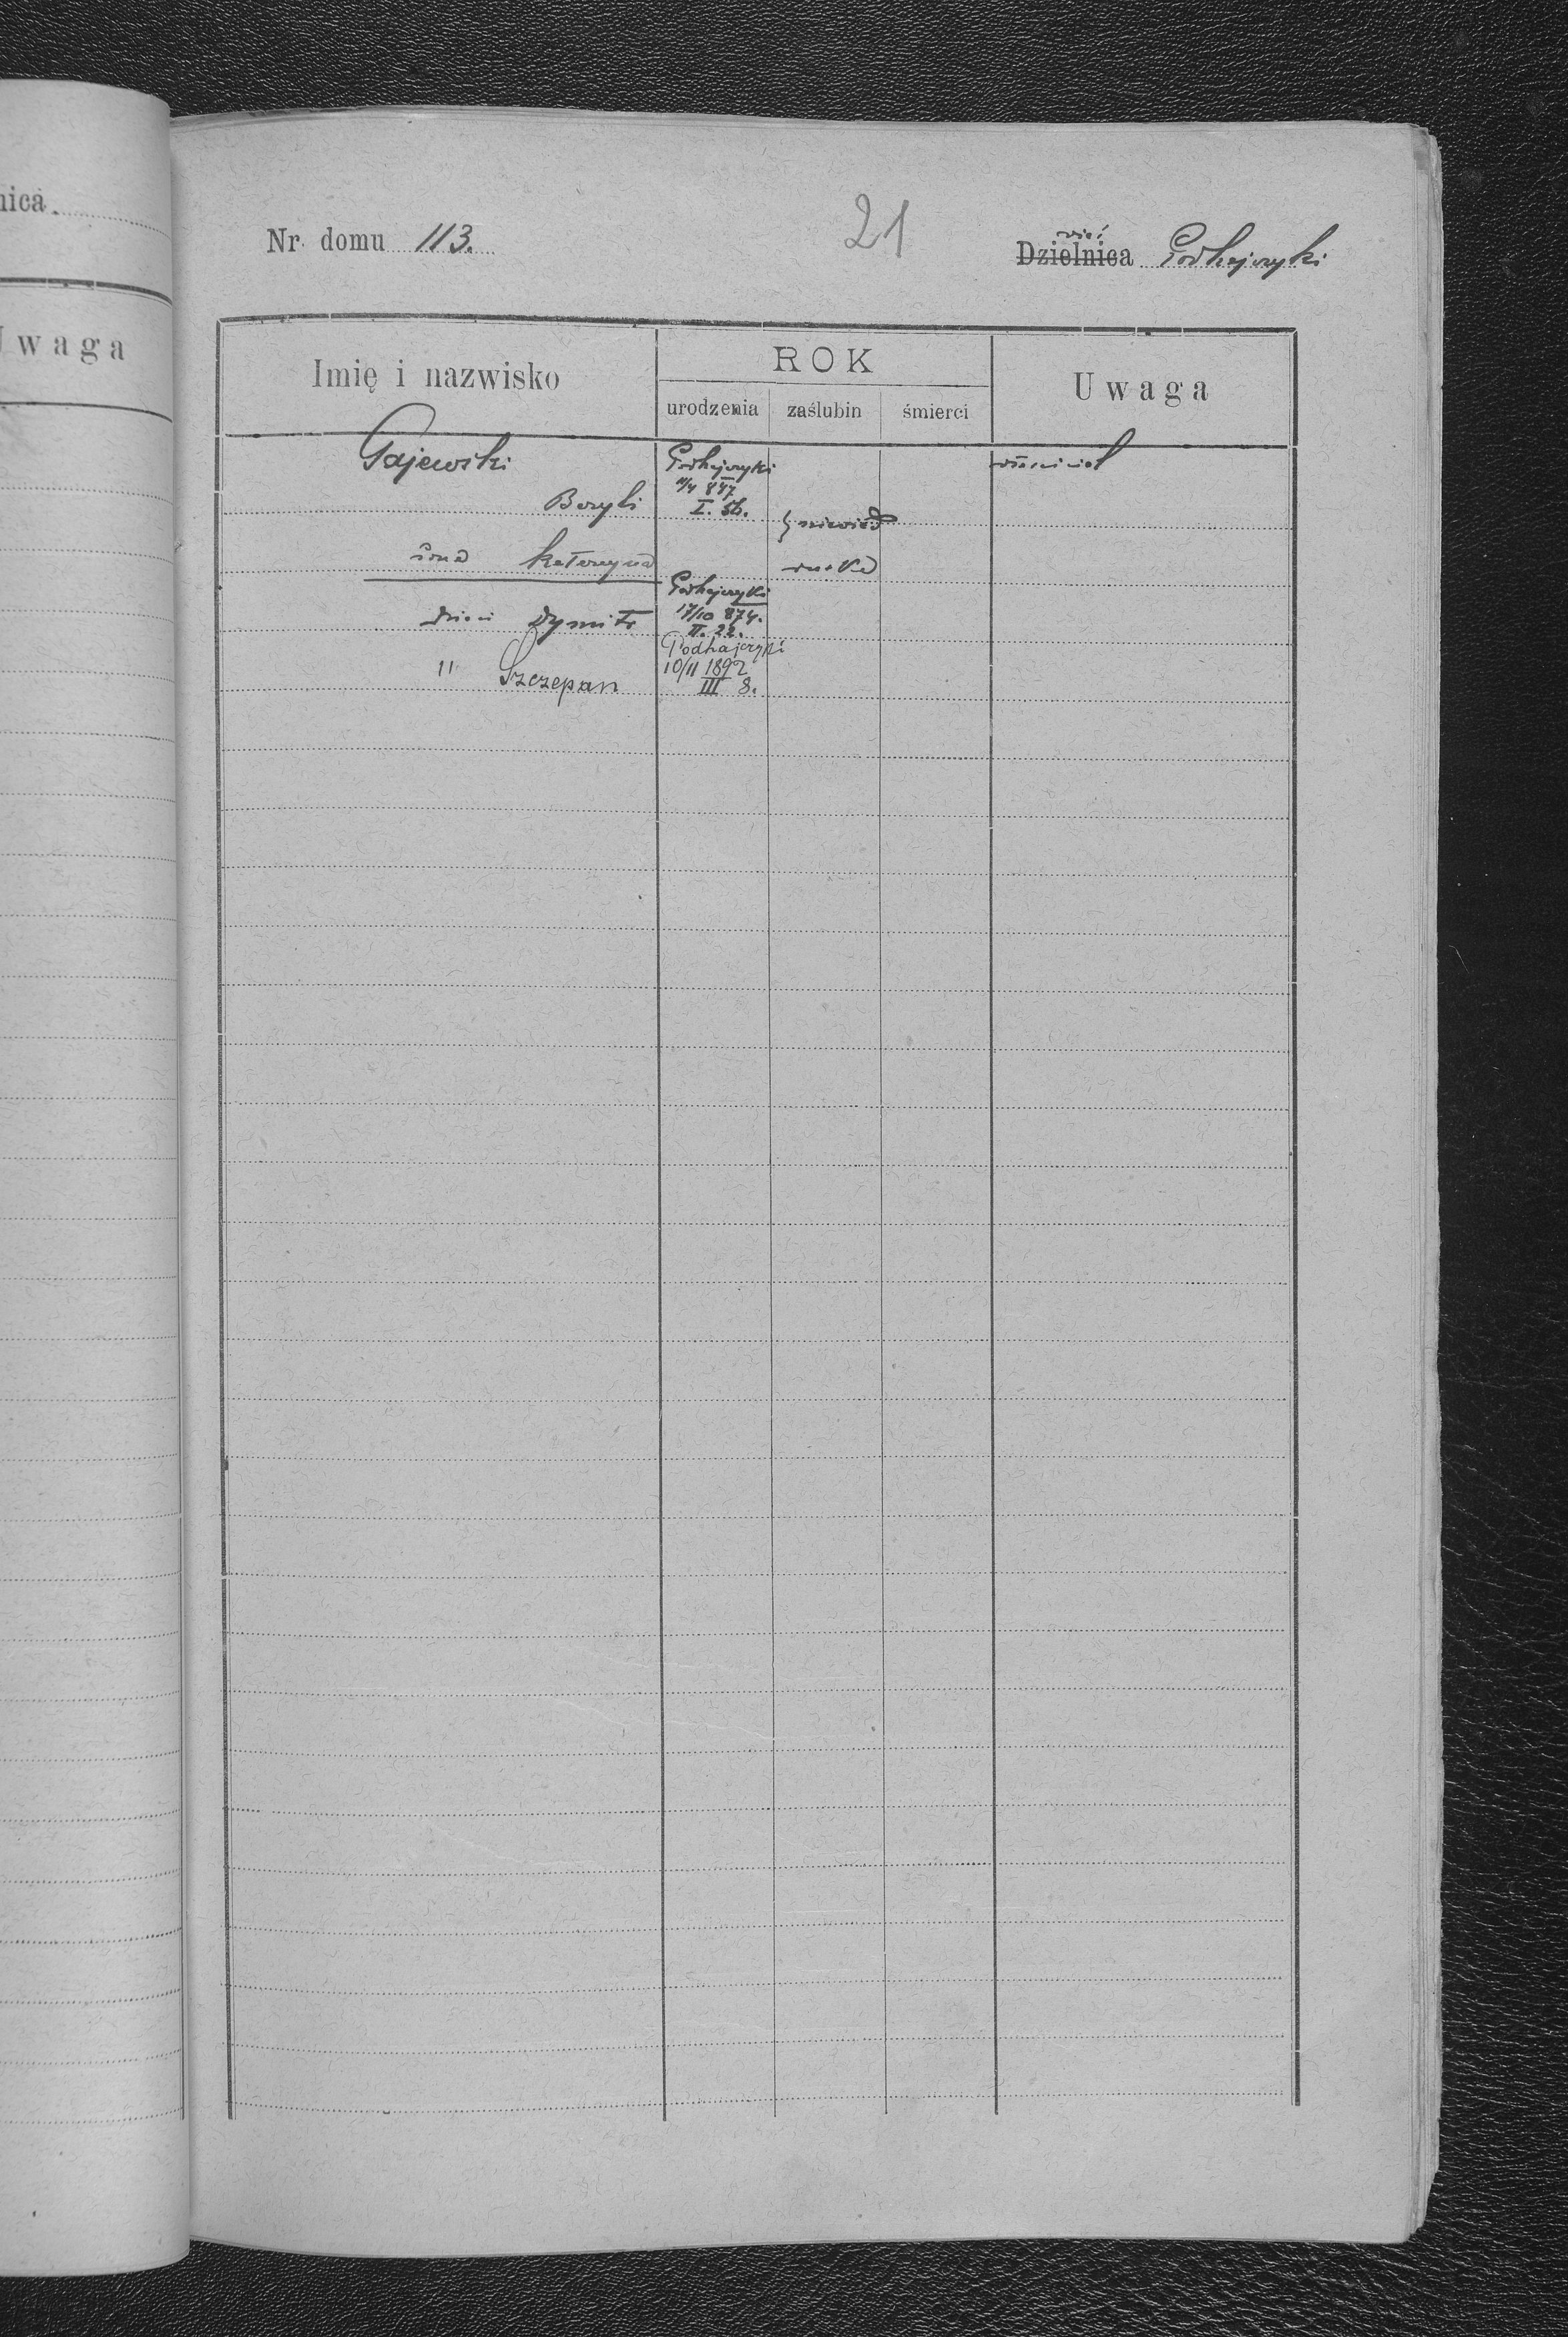 nica
Uwaga
Nr domu 113.
21
wieś
Dzielnica Podhajczyki
Imię i nazwisko
ROK
Uwaga
urodzenia zaślubin śmierci
Gajewski
Podhajczyki
właściciel
Bazyli
11/4 847
I. 56.
niewiad
żona Katarzyna
Podhajczyki
dzieci Dymitr
17/10 874.
II. 22.
" Szczepan
Podhajczyki
10/11 1892
III 8.